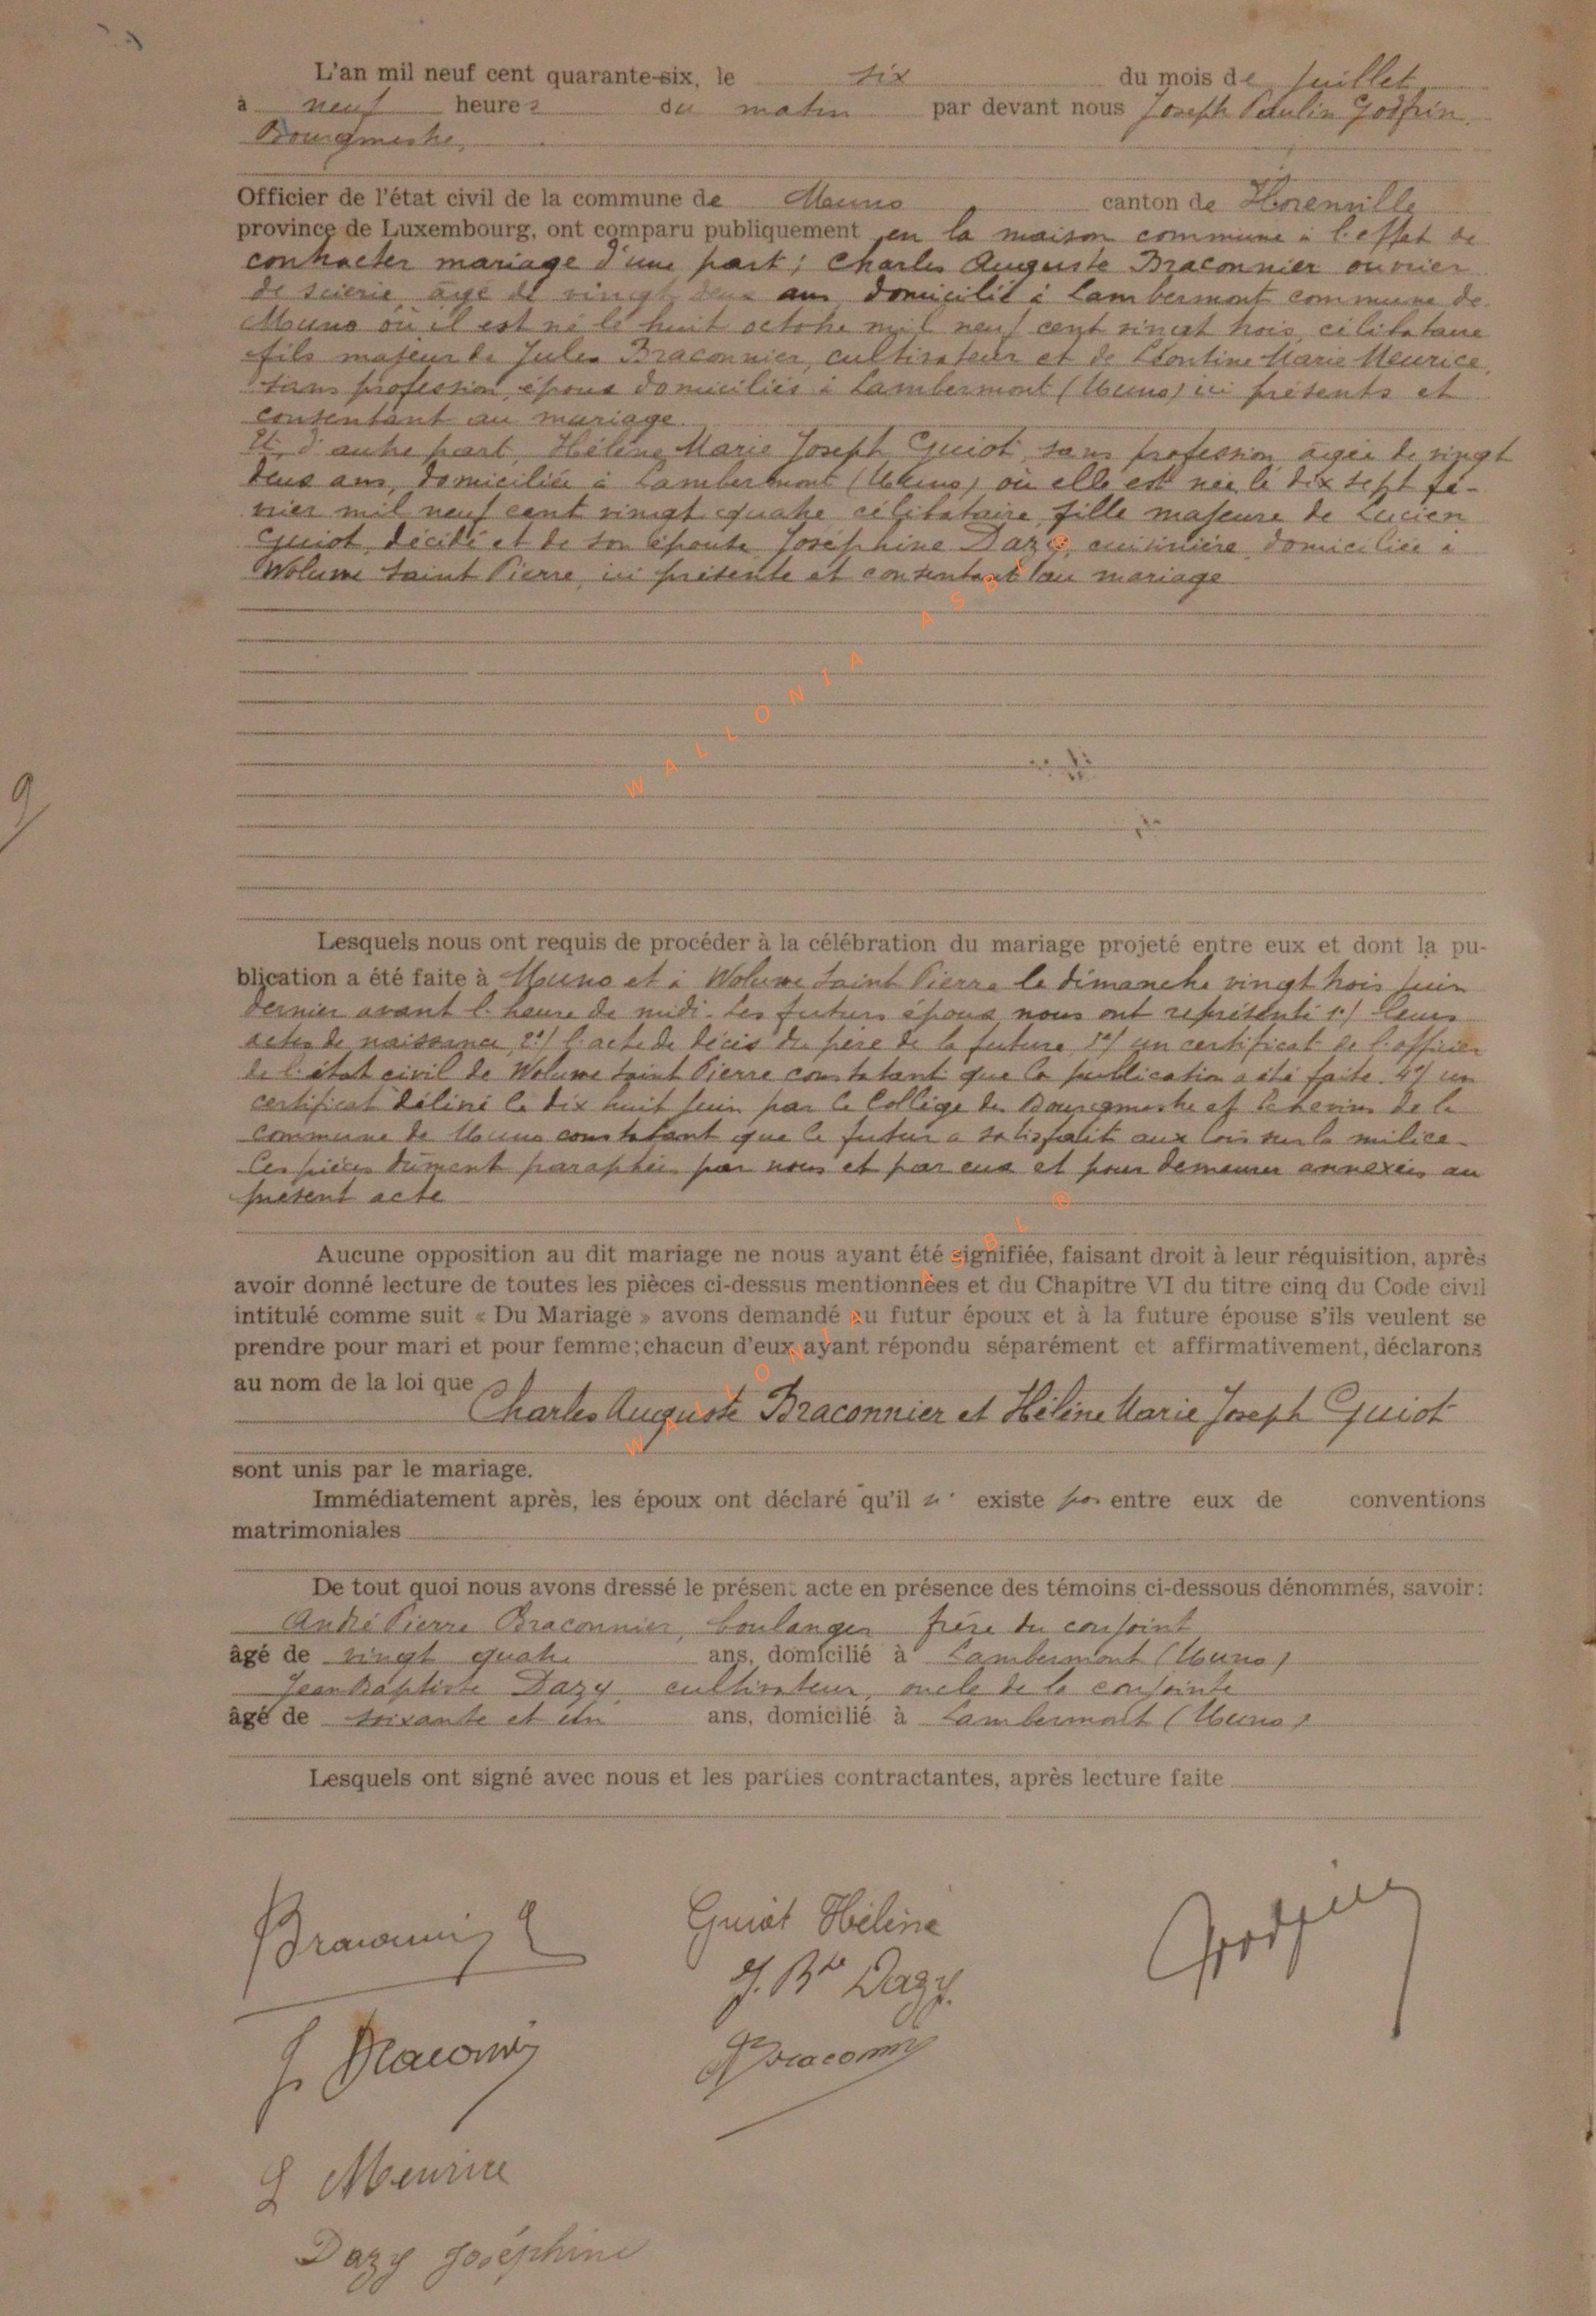 L'an mil neuf cent quarante-six, le six du mois de Juillet
à neuf heures du matin par devant nous Joseph Paulin Godfrin,
Bourgmestre,
Officier de l'état civil de la commune de Muno canton de Florenville
province de Luxembourg, ont comparu publiquement en la maison commune à l'effet de
contracter mariage d'une part; Charles Auguste Braconnier ouvrier
de scierie, âgé de vingt deux ans domicilié à Lambermont commune de
Muno où il est né le huit octobre mil neuf cent vingt trois, célibataire
fils majeur de Jules Braconnier, cultivateur et de Léontine Marie Meurice,
sans profession, époux domiciliés à Lambermont (Muno) ici présents et
consentant au mariage.
Et, d'autre part, Hélène Marie Joseph Guiot, sans profession, âgée de vingt
deux ans, domiciliée à Lambermont (Muno) où elle est née le dix sept fé-
vrier mil neuf cent vingt quatre célibataire, fille majeure de Lucien
Guiot, décédé et de son épouse Joséphine Dazy, cuisinière, domiciliée à
Woluwe Saint Pierre, ici présente et consentant au mariage
WALLONIA ASBL ®
9
Lesquels nous ont requis de procéder à la célébration du mariage projeté entre eux et dont la pu-
blication a été faite à Muno et à Woluwe Saint Pierre le dimanche vingt trois juin
dernier avant l'heure de midi. Les futurs époux nous ont représenté 1°/ leurs
actes de naissance, 2°/ l'acte de décès du père de la future, 3°/ un certificat de l'officier
de l'état civil de Woluwe Saint Pierre constatant que la publication a été faite. 4°/ un
certificat délivré le dix huit juin par le Collège des Bourgmestre et Echevins de la
commune de Muno constatant que le futur a satisfait aux lois sur la milice.
Ces pièces dûment paraphées par nous et par eux et pour demeurer annexées au
présent acte
Aucune opposition au dit mariage ne nous ayant été signifiée, faisant droit à leur réquisition, après
avoir donné lecture de toutes les pièces ci-dessus mentionnées et du Chapitre VI du titre cinq du Code civil
intitulé comme suit « Du Mariage » avons demandé au futur époux et à la future épouse s'ils veulent se
prendre pour mari et pour femme; chacun d'eux ayant répondu séparément et affirmativement, déclarons
au nom de la loi que
Charles Auguste Braconnier et Hélène Marie Joseph Guiot
WALLONIA ASBL ®
sont unis par le mariage.
Immédiatement après, les époux ont déclaré qu'il n' existe pas entre eux de conventions
matrimoniales
De tout quoi nous avons dressé le présent acte en présence des témoins ci-dessous dénommés, savoir:
André Pierre Braconnier, boulanger frère du conjoint
âgé de vingt quatre ans, domicilié à Lambermont (Muno)
Jean Baptiste Dazy, cultivateur, oncle de la conjointe
âgé de soixante et un ans, domicilié à Lambermont (Muno)
Lesquels ont signé avec nous et les parties contractantes, après lecture faite
Braconnier
Guiot Hélène
Godfrin
J. Bte Dazy.
J. Braconnier
Braconnier
L Meurice
Dazy Joséphine